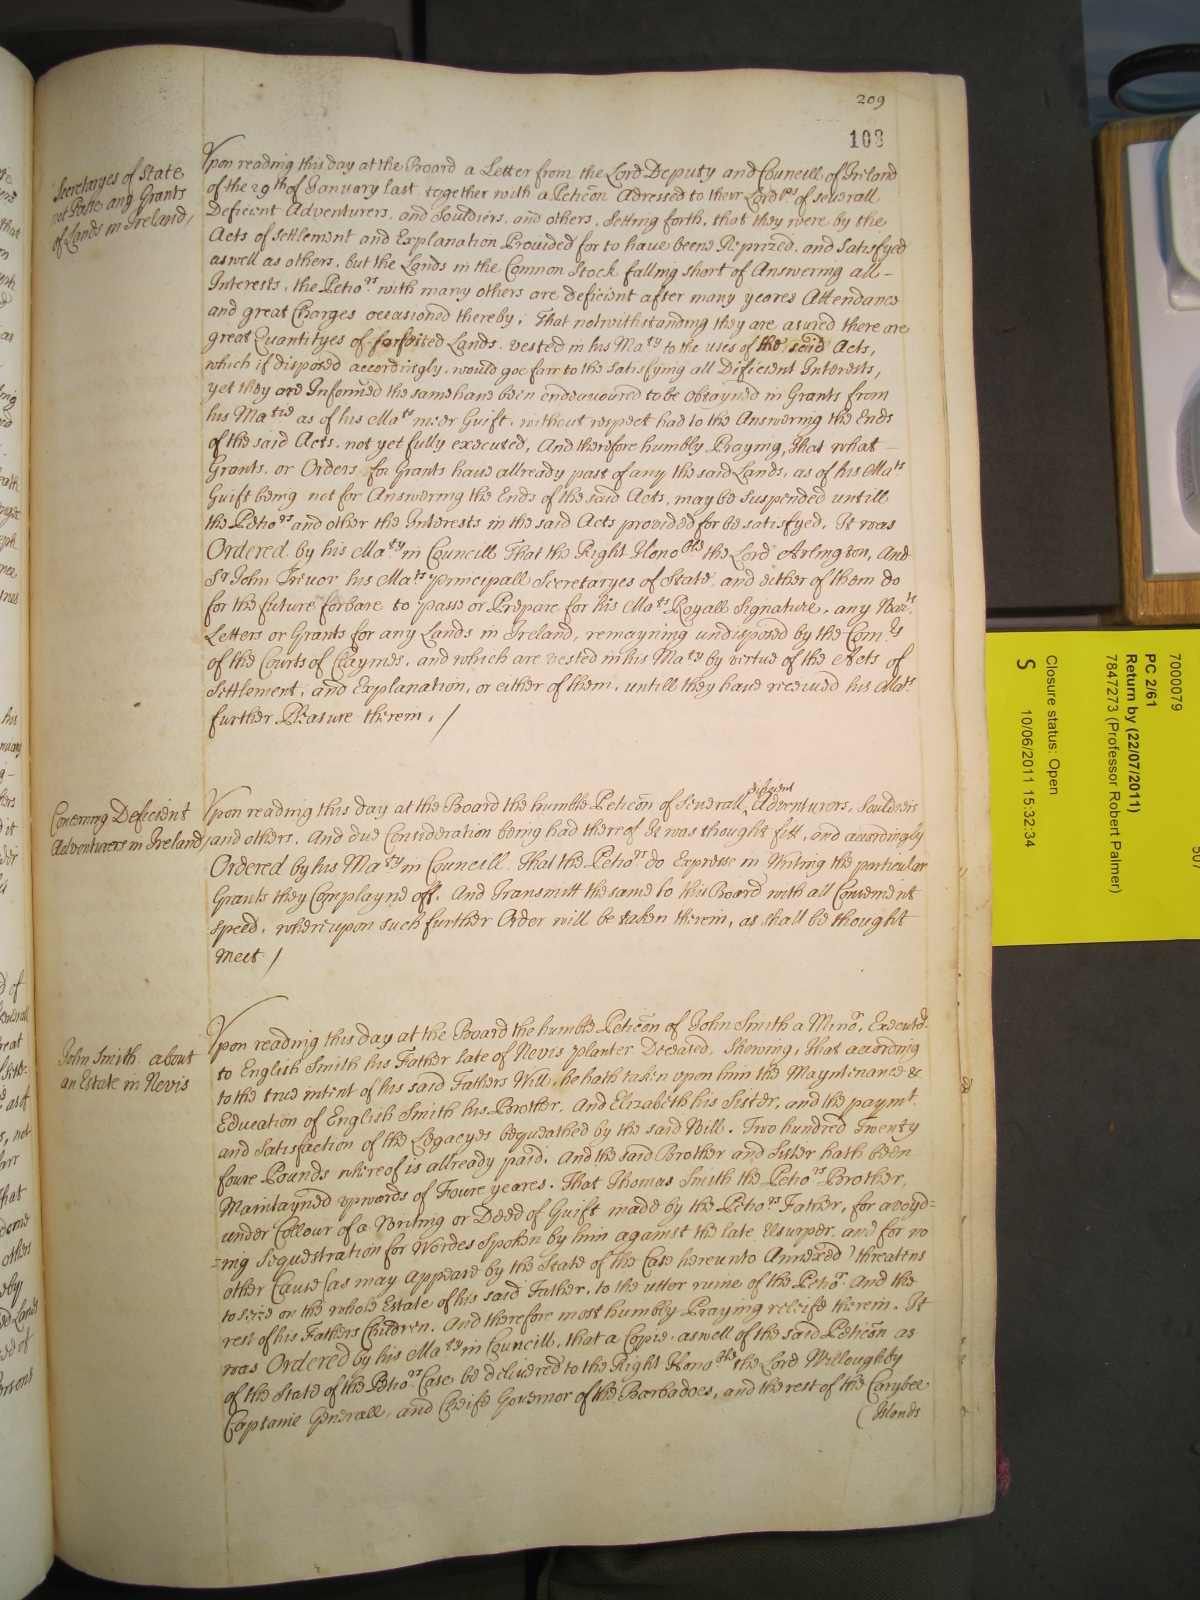 209
108
Secretaryes of State
not Passe any Grants
of Lands in Ireland,
Vpon reading this day at the Board a Letter from the Lord Deputy and Councill of Ireland
of the 29th of January last, together with a Peticõn Adressed to their Lordps of severall
Deficient Adventurers, and Souldiers, and others, Setting forth, that they were by the
Acts of Settlement and Explanation Provided for to have beene Reprized, and Satisfyed
aswell as others, but the Lands in the Common Stock falling short of Answering all -
Interests, the Petiors with many others are deficient after many yeares Attendance
and great Charges occasioned thereby; That notwithstanding they are asured there are
great Quantityes of forfeited Lands vested in his Maty to the uses of the said Acts,
which if disposed accordingly, would goe farr to the Satisfying all Dificient Interests,
yet they are Informed the same have been endeavoured to be obtayned in Grants from
his Matie as of his Mats meer Guift, without respect had to the Answering the Ends
of the said Acts, not yet fully executed, And therefore humbly Praying, That what -
Grants, or Orders for Grants have allready past of any the said Lands, as of his Mats
Guift being not for Answering the Ends of the said Acts, may be Suspended untill
the Petiors and other the Interests in the said Acts provided for be satisfyed, It was
Ordered by his Maty in Councill That the Right Honoble the Lord Arlington, And
Sr John Trevor his Mats principall Secretaryes of State, and either of them do
for the future forbare to passe or Prepare for his Mats Royall Signature, any Warrts
Letters or Grants for any Lands in Ireland, remayning undisposed by the Comrs
of the Courts of Claymes, and which are vested in his Maty by virtue of the Acts of
Settlement, and Explanation, or either of them, untill they have received his Mats
further Pleasure therein. /
Concerning Deficient
Adventurers in Ireland
Vpon reading this day at the Board the humble Peticõn of severall deficient Adventurers, Souldiers
and others, And due Consideration being had thereof It was thought fitt, and accordingly
Ordered by his Maty in Councill, That the Petiors do Expresse in Writing the particular
Grants they Complayne off, And Transmitt the same to this Board with all Convenient
speed, whereupon such further Order will be taken therein, as shall be thought
meet /
John Smith about
an Estate in Nevis
Vpon reading this day at the Board the humble Peticõn of John Smith a Minor, Executr
to English Smith his Father late of Nevis planter Deceased, Shewing, That according
to the true intent of his said Fathers Will, he hath taken upon him the Mayntenance &
Education of English Smith his Brother, And Elizabeth his Sister, and the paymt
and Satisfaction of the Legacyes bequeathed by the said Will, Two hundred Twenty
foure Pounds whereof is allready paid, And the said Brother and Sister hath been
Maintayned upwards of Foure yeares. That Thomas Smith the Petiors Brother,
under Collour of a Writing or Deed of Guift made by the Petiors Father, for avoyd=
=ing Sequestration for Wordes Spoken by him against the late Usurper, and for no
other Cause (as may Appeare by the State of the Case hereunto Annexed) threatens
to seize on the whole Estate of his said Father, to the utter ruine of the Petior And the
rest of his Fathers Children. And therefore most humbly Praying releife therein. It
was Ordered by his Maty in Councill, that a Copie, aswell of the said Peticõn as
of the State of the Petiors Case be delivered to the Right Honoble the Lord Willoughby
Captaine Generall, and Cheife Governor of the Barbadoes, and the rest of the Carybee
Islands
7000079
PC 2/61
Return by (22/07/2011)
7847273 (Professor Robert Palmer)
Closure status: Open
S 10/06/2011 15:32:34